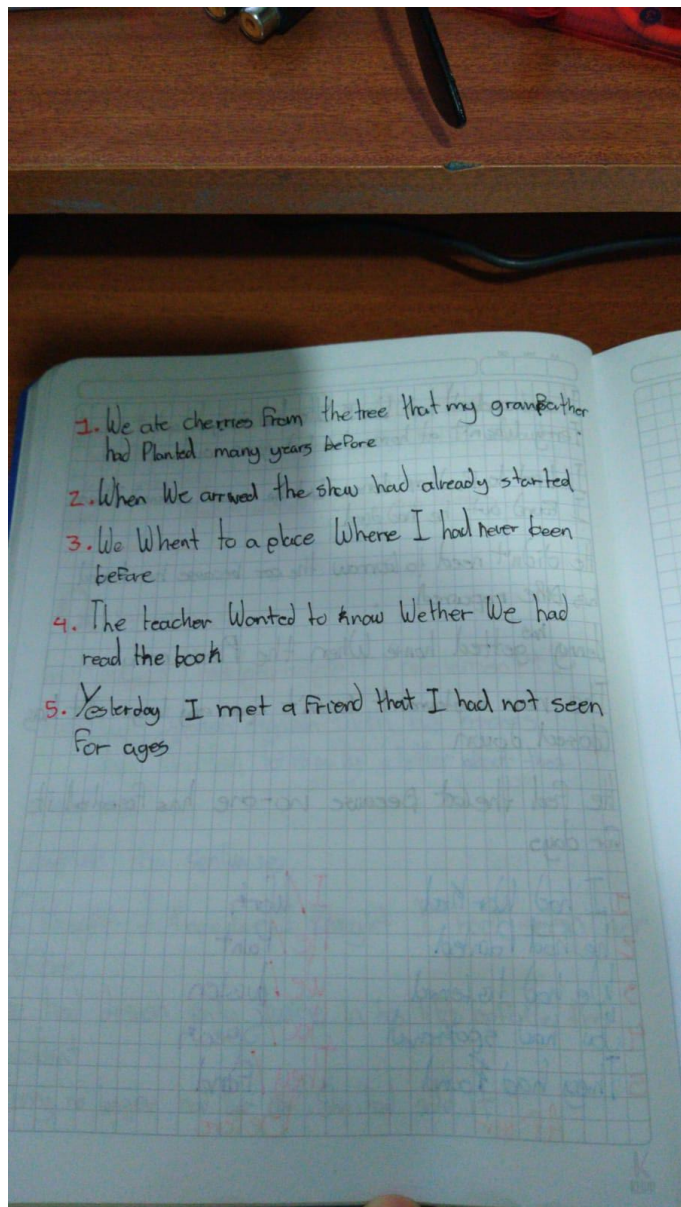 1. We ate cherries From the tree that my grandfather
had Planted many years before
2. When We arrived the show had already started
3. We Whent to a place Where I had never been
before
4. The teacher Wanted to know Wether We had
read the book
5. Yesterday I met a Friend that I had not seen
For ages